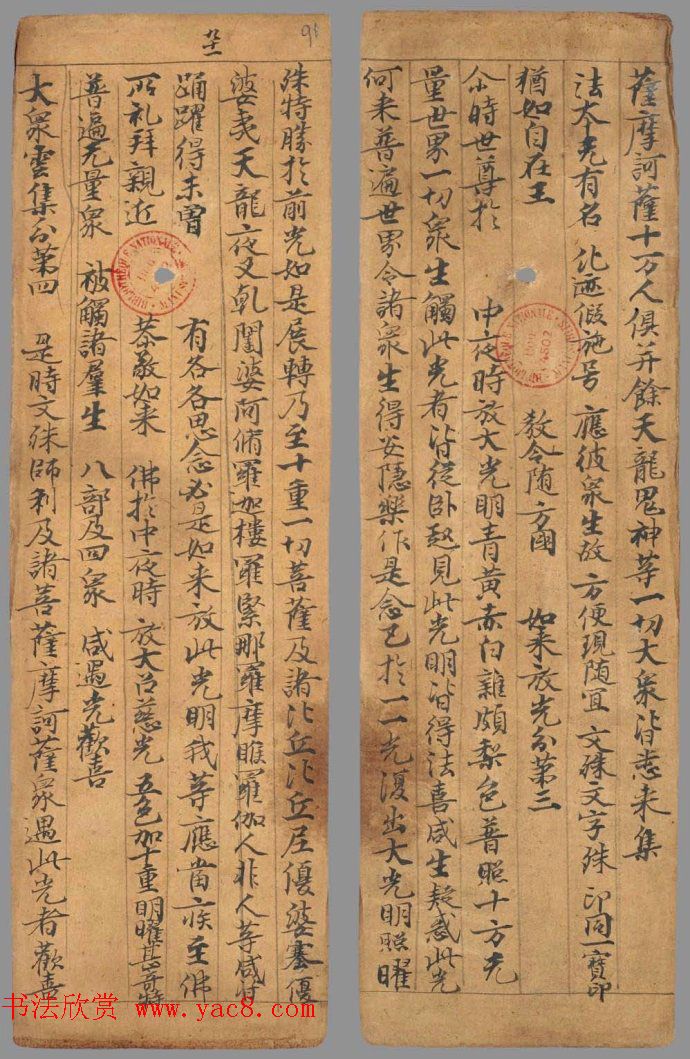 薩摩訶薩十万人俱并餘天龍鬼神等一切大衆皆悉来集
法本无有名 化迹假施号 應彼衆生故 方便現随宜 文殊文字殊 印同一寶印
猶如自在王 教令随方國 如来放光分第三
尒時世尊於 中夜時放大光明青黄赤白雜頗梨色普照十方无
量世界一切衆生觸此光者皆從卧起見此光明皆得法喜咸生疑惑此光
何来普遍世界令諸衆生得安隱樂作是念已於一一光復出大光明照曜
91
殊特勝於前光如是展轉乃至十重一切菩薩及諸比丘比丘尼優婆塞優
婆夷天龍夜叉乹闥婆阿脩羅迦樓羅緊那羅摩睺羅伽人非人等咸皆
踊躍得未曾 有各各思念必是如来放此光明我等應當疾至佛
所礼拜親近 恭敬如来 佛於中夜時 放大慈光 五色加十重 明曜甚奇特
普遍无量衆 被觸諸羣生 八部及四衆 咸遇光歡喜
大衆雲集分第四 是時文殊師利及諸菩薩摩訶薩衆遇此光者歡喜
书法欣赏 www.yac8.com